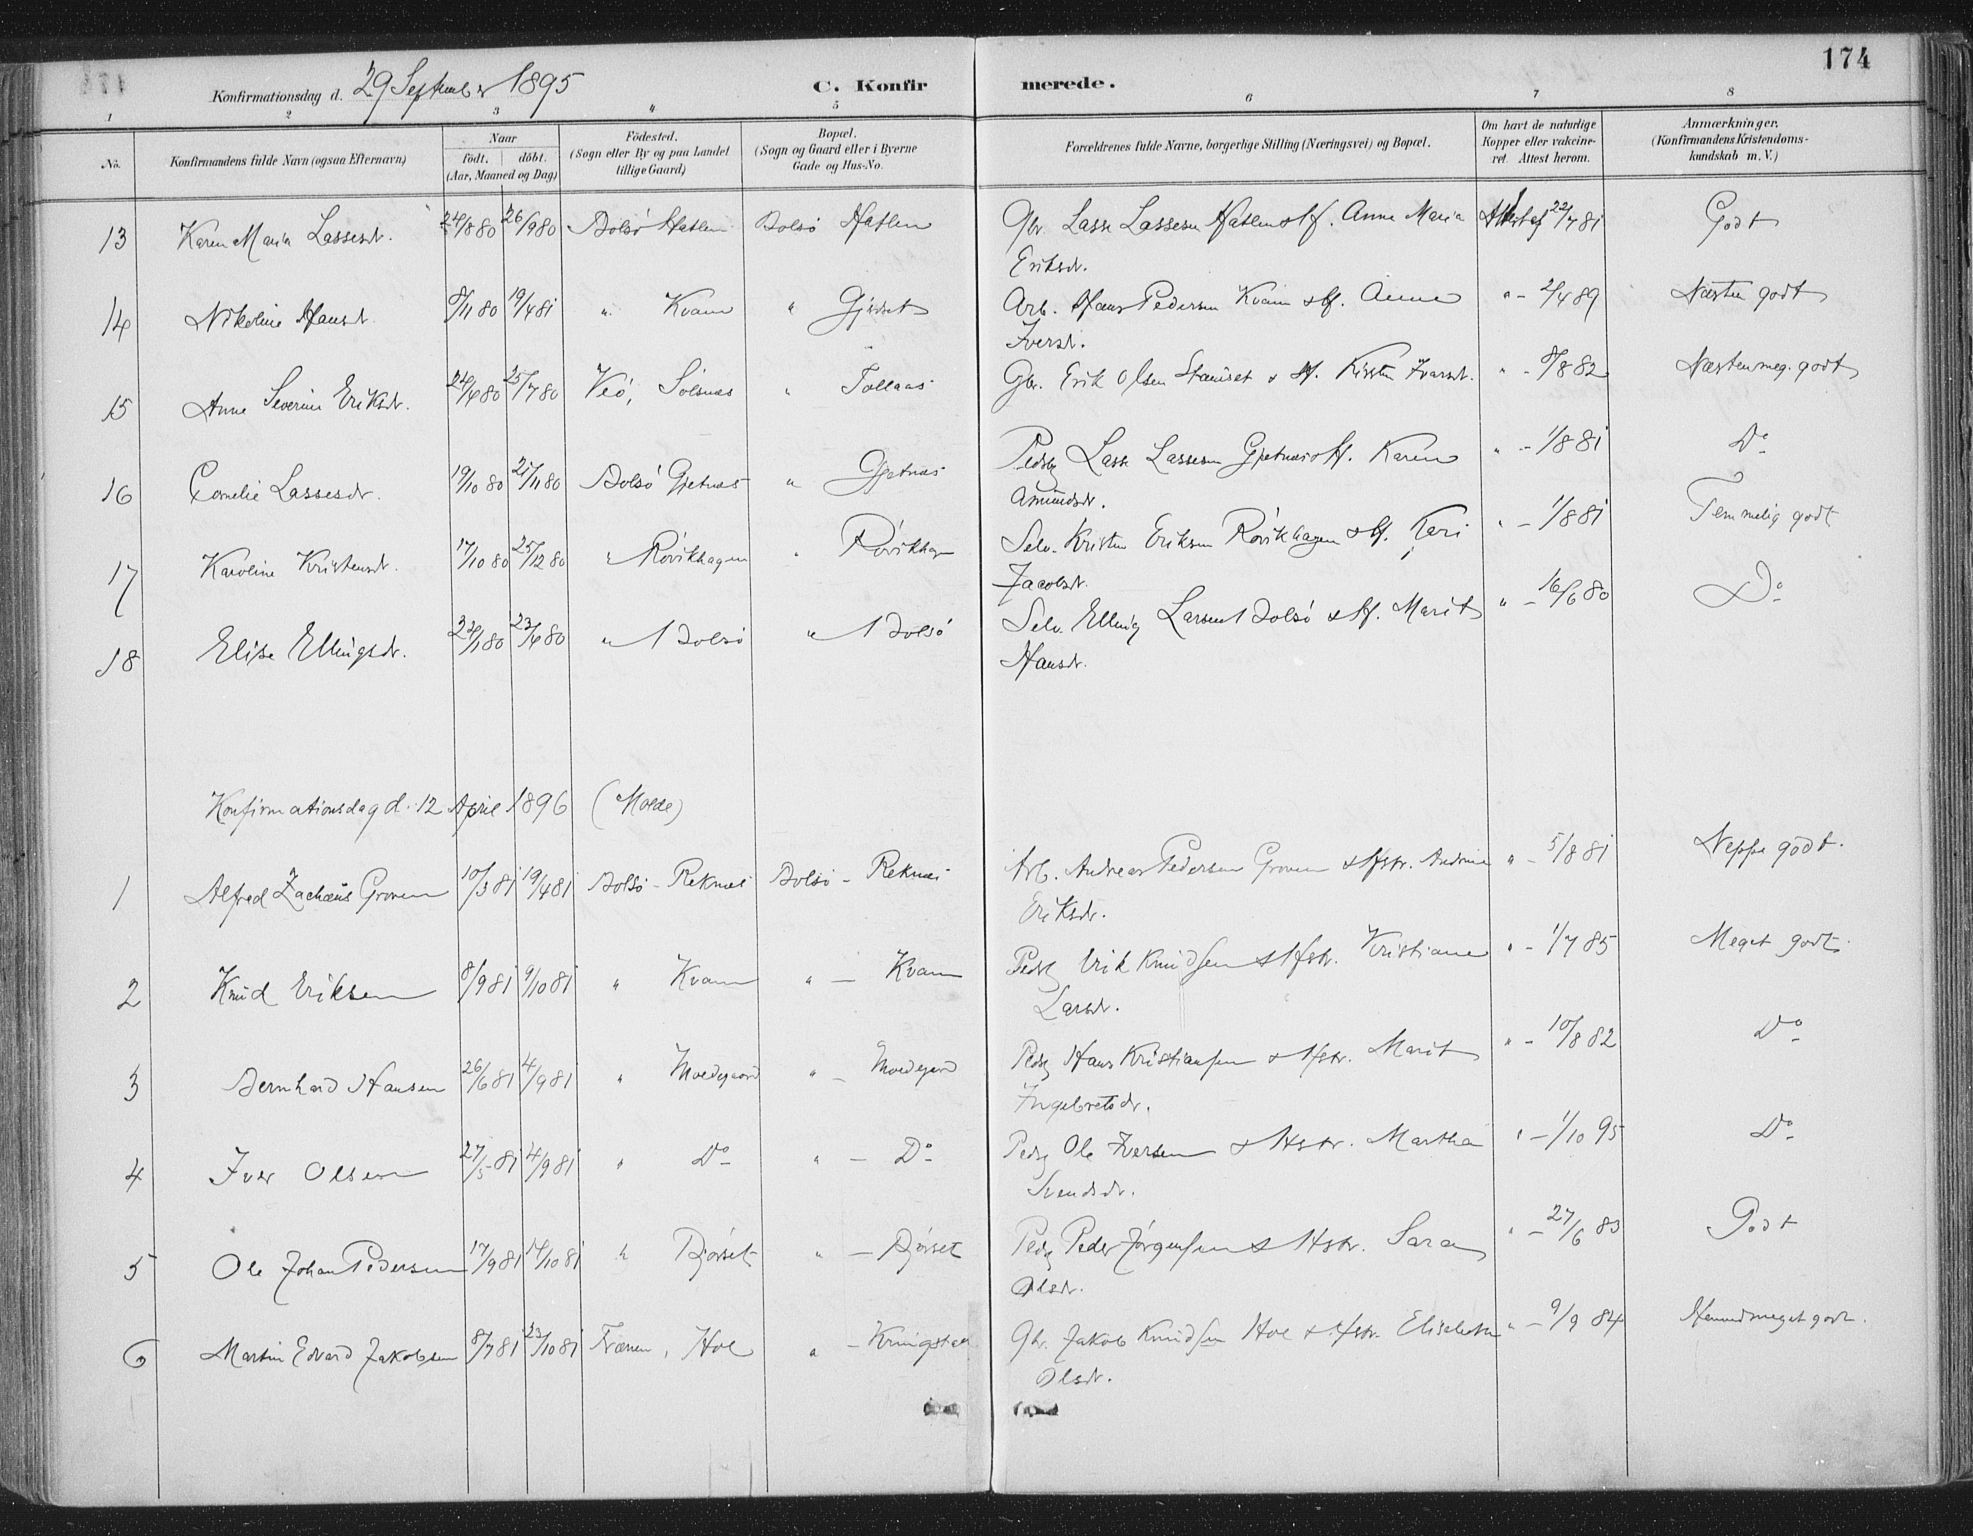 174
Konfirmationsdag d. 29 September 1895
C. Konfirmerede.
1 2 3 4 5 6 7 8
No. Konfirmandens fulde Navn (ogsaa Efternavn) Naar født. døbt. (Aar, Maaned og Dag) Fødested. (Sogn eller By og paa Landet tillige Gaard) Bopæl. (Sogn og Gaard eller i Byerne Gade og Hus-No. Forældrenes fulde Navne, borgerlige Stilling (Næringsvei) og Bopæl. Om havt de naturlige Kopper eller vakcineret. Attest herom. Anmærkninger. (Konfirmandens Kristendomskundskab m. V.)
13 Karen Maria Lassesdt. 24/8 80 26/9 80 Bolsø Hatlen Bolsø Hatlen Gbr. Lasse Lassesen Hatlen & Hf. Anne Maria Attest af 22/7 81 Godt
Eriksdr.
14 Nikoline Hansdt. 8/11 80 19/4 81 " Kvam " Gjørset Arb. Hans Pedersen Kvam & Hf. Anne " - 2/4 89 Næsten godt
Iversdt.
15 Anne Severine Eriksdr. 24/6 80 25/7 80 Veø, Sølsnæs " Tollaas Gbr. Erik Olsen & Hf. Kirsten Ivarsdt. " - 8/8 82 Næsten meg. godt
16 Cornelie Lassesdr. 19/10 80 21/11 80 Bolsø Gjetnæs " Gjetnæs Pedsg Lasse Lassesen Gjetnæs & Hf. Karen " - 1/8 81 Do
Amundsdr.
17 Karoline Kristensdt. 17/10 80 25/12 80 " Røvikhagen " Røvikhagen Selv. Kristen Eriksen Røvikhagen & Hf. Kari " - 1/8 81 Temmelig godt
Jacobsdt.
18 Elise Ellingsdr. 22/1 80 23/6 80 " Bolsø " Bolsø Selv. Elling Larsen Bolsø & Hf. Marit " - 16/6 80 Do
Hansdr.
Konfirmationsdag d. 12 April 1896 (Molde)
1 Alfred Zachæus Groven 10/3 81 19/4 81 Bolsø - Reknæs Bolsø - Reknæs Arb. Andreas Pedersen Groven & Hstr. Andrine " - 5/8 81 Neppe godt.
Eriksdr.
2 Knud Eriksen 8/9 81 9/10 81 " Kvam " - Kvam Pedsg Erik Knudsen & Hstr. Kristiane " - 1/7 85 Meget godt.
Larsdr.
3 Bernhard Hansen 26/6 81 4/9 81 " Moldegaard " - Moldegaard Pedsg Hans Kristiansen & Hstr. Marit " - 10/8 82 Do
Ingebretsdr.
4 Iver Olsen 27/5 81 4/9 81 " Do " - Do Pedsg Ole Iversen & Hstr. Martha " - 1/10 95 Do
Svendsdr.
5 Ole Johan Pedersen 17/9 81 14/10 81 " Bjørset " - Bjørset Pedsg Peder Jørgensen & Hstr. Sara " - 27/6 83 Godt
Olsdr.
6 Martin Edvard Jakobsen 8/7 81 23/10 81 Frænen, Hol " - Kringstad Gbr. Jakob Knudsen Hol & Hstr. Elisabeth " - 9/9 84 meget godt.
Olsdr.